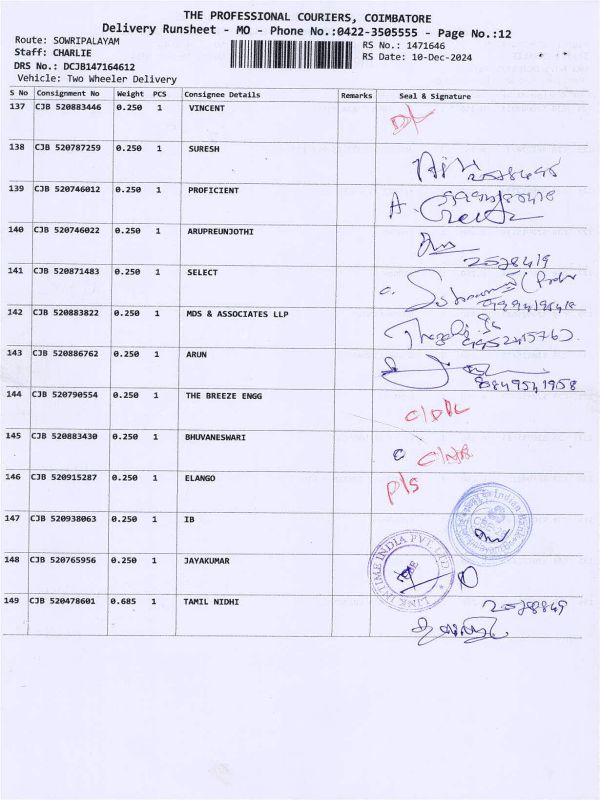 THE PROFESSIONAL COURIERS, COIMBATORE
Delivery Runsheet - MO - Phone No.:0422-3505555 - Page No.:12
Route: SOWRIPALAYAM
RS No.: 1471646
Staff: CHARLIE
RS Date: 10-Dec-2024
DRS No.: DCJB147164612
Vehicle: Two Wheeler Delivery
S No Consignment No Weight PCS Consignee Details Remarks Seal & Signature
137 CJB 520883446 0.250 1 VINCENT
138 CJB 520787259 0.250 1 SURESH
139 CJB 520746012 0.250 1 PROFICIENT
140 CJB 520746022 0.250 1 ARUPREUNJOTHI
141 CJB 520871483 0.250 1 SELECT
142 CJB 520883822 0.250 1 MDS & ASSOCIATES LLP
143 CJB 520886762 0.250 1 ARUN
8849541958
144 CJB 520790554 0.250 1 THE BREEZE ENGG
145 CJB 520883430 0.250 1 BHUVANESWARI
146 CJB 520915287 0.250 1 ELANGO
P/S
147 CJB 520938063 0.250 1 IB
Indian Bank
148 CJB 520765956 0.250 1 JAYAKUMAR
LINK INTIME INDIA PVT. LTD
149 CJB 520478601 0.685 1 TAMIL NIDHI